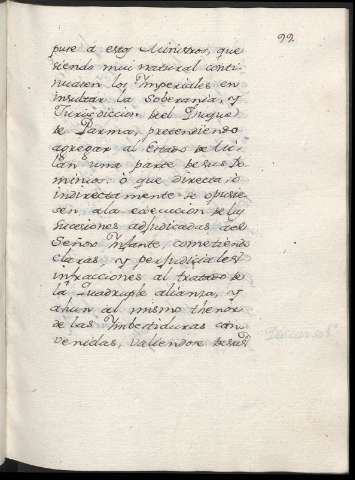 92
puse á estos Ministros, que
siendo mui natural conti-
nuasen los Imperiales en
insultar la Soberanía, y
Jurisdiccion del Duque
de Parma, pretendiendo
agregar al Estado de Mi-
lan una parte de sus Do-
minios: ò que directa, ò
indirectamente se opusie-
sen ala execucion de las
succesiones adjudicadas al
Señor Infante, cometiendo
claras, y perjudiciales
infracciones al tratado de
la Quadruple alianza, y
ahun al mismo thenor
de las Imbestiduras con-
venidas, valiendose de sus